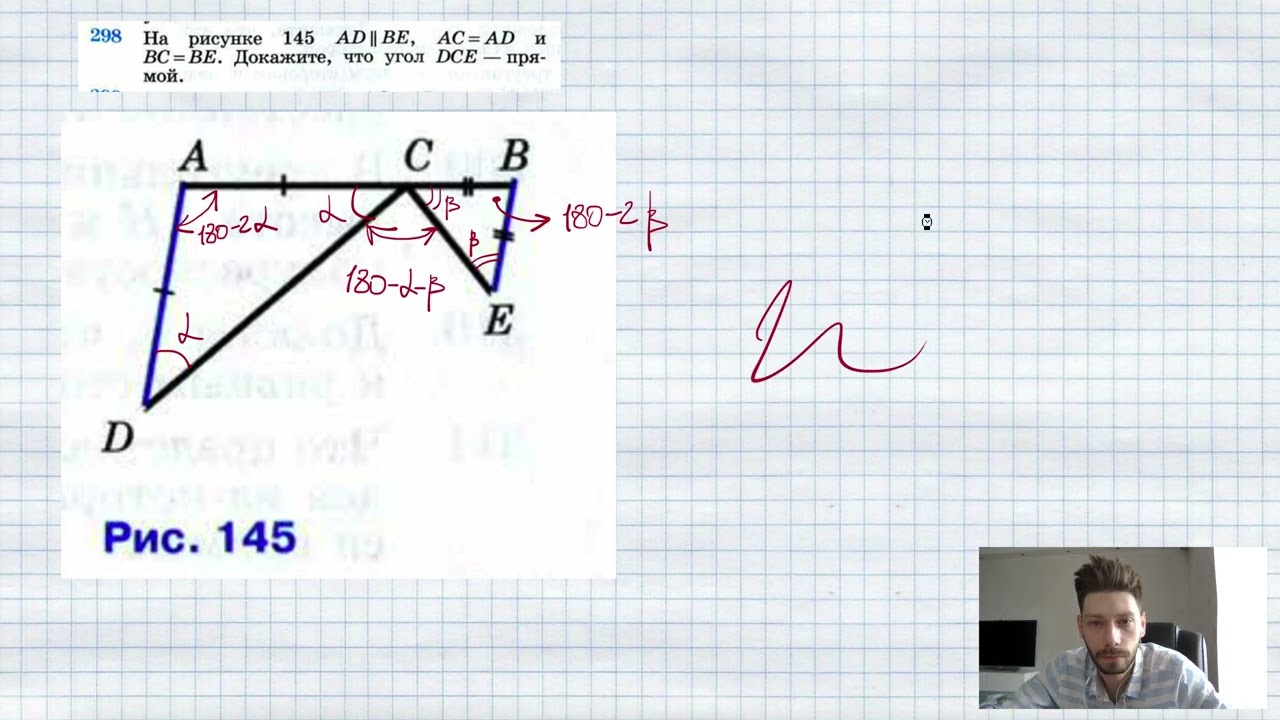 298 На рисунке 145 AD ∥ BE, AC = AD и
BC = BE. Докажите, что угол DCE — пря-
мой.
A C B
180-2α α β 180-2β
β
180-α-β
E
α
D
Рис. 145